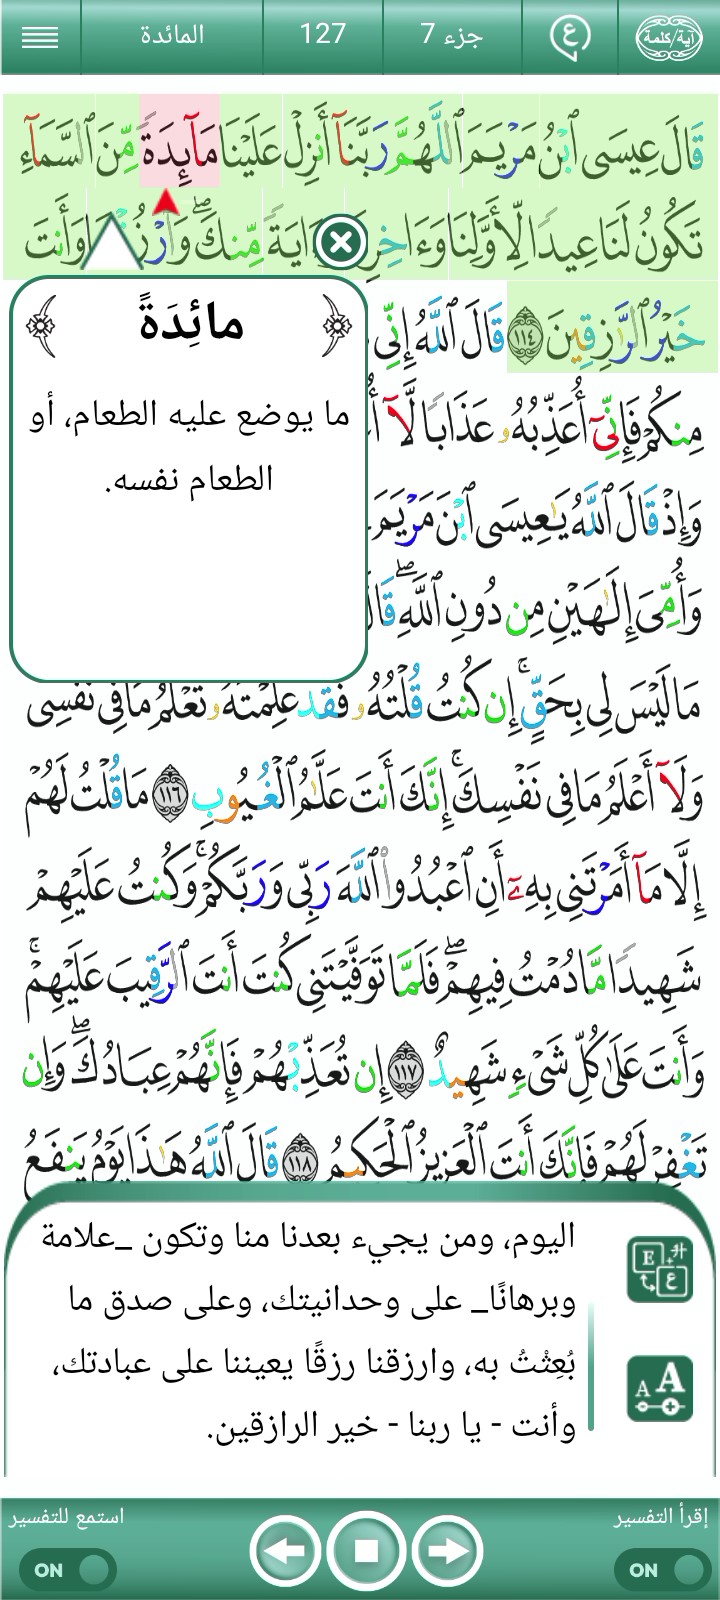 المائدة
127
جزء 7
ع
آية/كلمة
قَالَ عِيسَى ٱبْنُ مَرْيَمَ ٱللَّهُمَّ رَبَّنَآ أَنزِلْ عَلَيْنَا مَآئِدَةً مِّنَ ٱلسَّمَآءِ
تَكُونُ لَنَا عِيدًا لِّأَوَّلِنَا وَءَاخِرِ ءَايَةً مِّنكَ ۖ وَٱرْزُ وَأَنتَ
خَيْرُ ٱلرَّٰزِقِينَ ١١٤ قَالَ ٱللَّهُ إِنِّى
مِنكُمْ فَإِنِّىٓ أُعَذِّبُهُۥ عَذَابًا لَّآ
وَإِذْ قَالَ ٱللَّهُ يَٰعِيسَى ٱبْنَ مَرْيَمَ
وَأُمِّىَ إِلَٰهَيْنِ مِن دُونِ ٱللَّهِ ۖ قَالَ
مَا لَيْسَ لِى بِحَقٍّ ۚ إِن كُنتُ قُلْتُهُۥ فَقَدْ عَلِمْتَهُۥ تَعْلَمُ مَا فِى نَفْسِى
وَلَآ أَعْلَمُ مَا فِى نَفْسِكَ ۚ إِنَّكَ أَنتَ عَلَّٰمُ ٱلْغُيُوبِ ١١٦ مَا قُلْتُ لَهُمْ
إِلَّا مَآ أَمَرْتَنِى بِهِۦٓ أَنِ ٱعْبُدُوا۟ ٱللَّهَ رَبِّى وَرَبَّكُمْ ۚ وَكُنتُ عَلَيْهِمْ
شَهِيدًا مَّا دُمْتُ فِيهِمْ ۖ فَلَمَّا تَوَفَّيْتَنِى كُنتَ أَنتَ ٱلرَّقِيبَ عَلَيْهِمْ ۚ
وَأَنتَ عَلَىٰ كُلِّ شَىْءٍ شَهِيدٌ ١١٧ إِن تُعَذِّبْهُمْ فَإِنَّهُمْ عِبَادُكَ ۖ وَإِن
تَغْفِرْ لَهُمْ فَإِنَّكَ أَنتَ ٱلْعَزِيزُ ٱلْحَكِيمُ ١١٨ قَالَ ٱللَّهُ هَٰذَا يَوْمُ يَنفَعُ
مائِدَةً
ما يوضع عليه الطعام، أو
الطعام نفسه.
اليوم، ومن يجيء بعدنا منا وتكون _علامة
وبرهانًا_ على وحدانيتك، وعلى صدق ما
بُعِثْتُ به، وارزقنا رزقًا يعيننا على عبادتك،
وأنت - يا ربنا - خير الرازقين.
E
ع
A A
إقرأ التفسير
ON
استمع للتفسير
ON